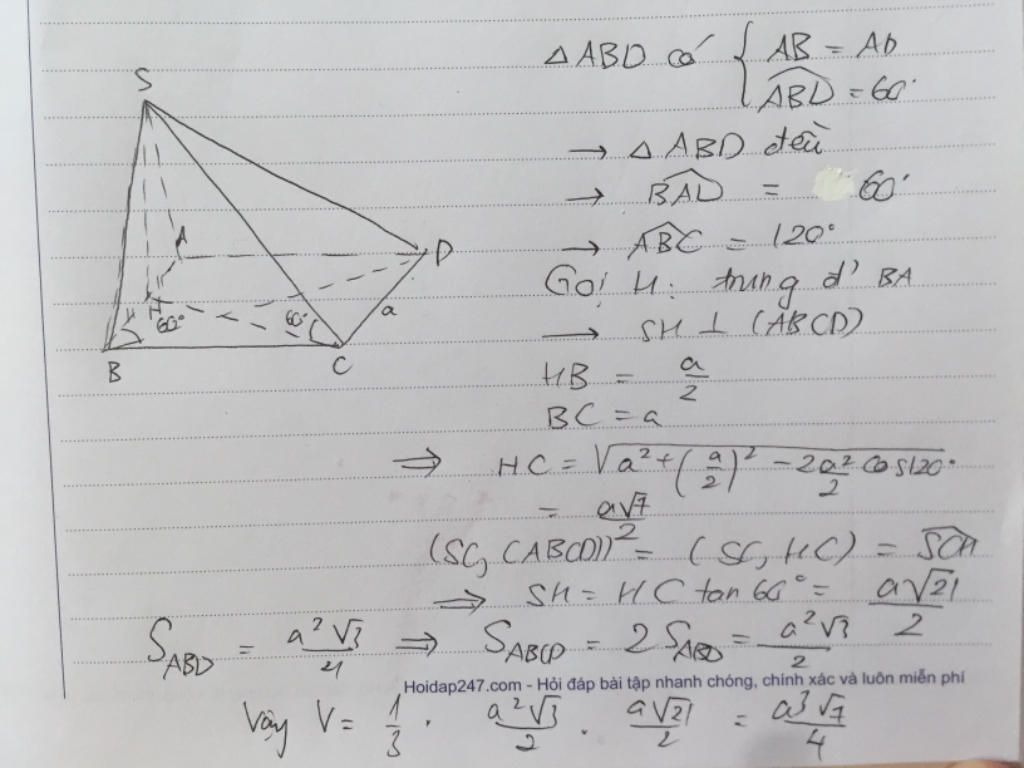 △ABD có { AB = AD
ABD = 60°
→ △ABD đều
→ BAD = 60°
→ ABC = 120°
Gọi H: trung đ' BA
→ SH ⊥ (ABCD)
HB = a/2
BC = a
⇒ HC = √(a² + (a/2)² − 2a²/2 cos120°)
= a√7/2
(SC, (ABCD))^ = (SC, HC) = SCH
⇒ SH = HC tan 60° = a√21/2
S_ABD = a²√3/4 ⇒ S_ABCD = 2S_ABD = a²√3/2
Hoidap247.com - Hỏi đáp bài tập nhanh chóng, chính xác và luôn miễn phí
Vậy V = 1/3 . a²√3/2 . a√21/2 = a³√7/4
S
A
D
H
60°
60°
a
B
C